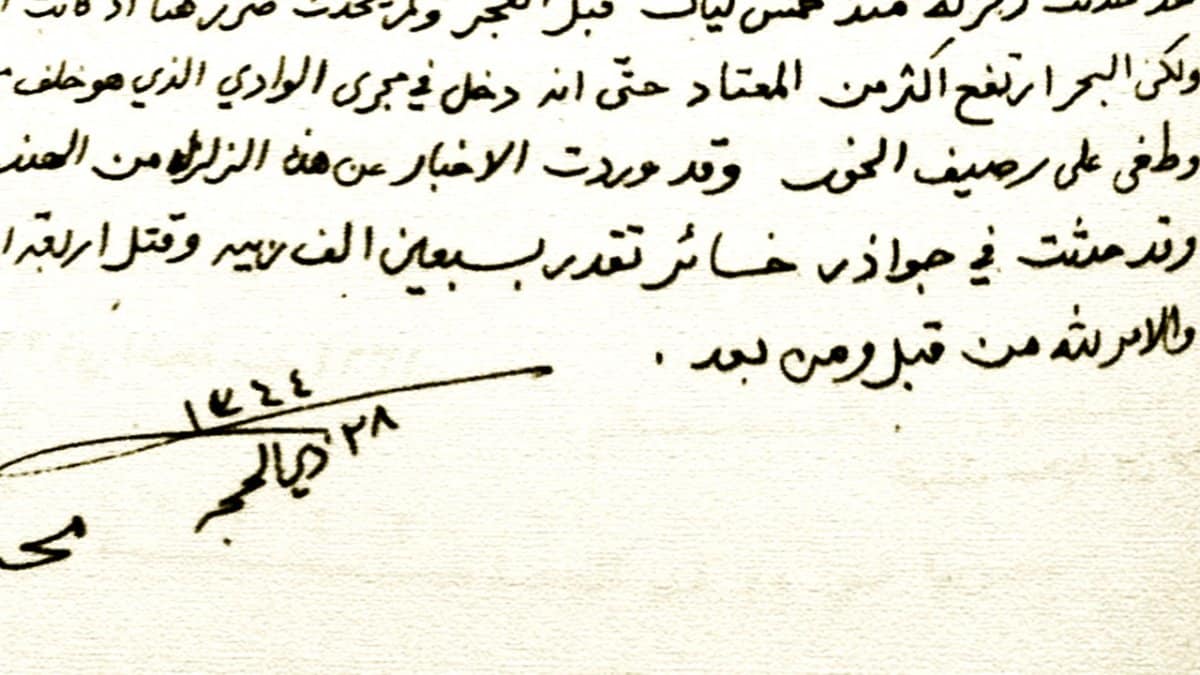 زلزله منذ خمس ليال قبل الفجر ولم يحدث ضرر هنا اذ كانت
ولكن البحر ارتفع اكثر من المعتاد حتّى انه دخل في مجرى الوادي الذي هو خلف
وطغى على رصيف الخور وقد وردت الاخبار عن هذه الزلزله من الهند
وقد حدثت في جواذر خسائر تقدر بسبعين الف ربيه وقتل اربعة
والامر لله من قبل ومن بعد .
١٣٦٤
٢٨ ذي الحجه